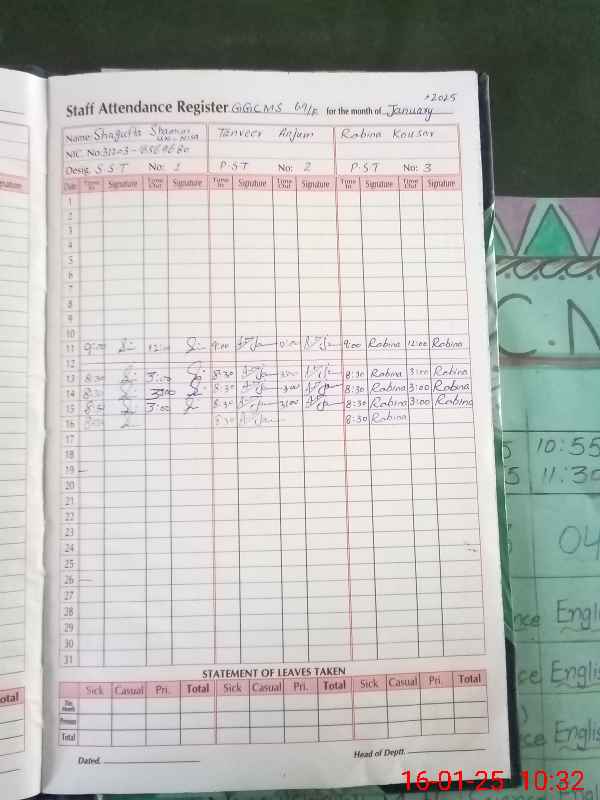 2025
Staff Attendance Register GGCMS 69/F for the month of January
Name: Shagufta Shamim Un-Nisa Tanveer Anjum Rabina Kousar
NIC. No:
Desig. S.S.T No: 1 P.S.T No: 2 P.S.T No: 3
Date Time In Signature Time Out Signature Time In Signature Time Out Signature Time In Signature Time Out Signature
1
2
3
4
5
6
7
8
9
10
11 9:00 12:00 9:00 9:00 Rabina 12:00 Rabina
12
13 8:30 3:00 8:30 3:00 8:30 Rabina 3:00 Rabina
14 8:30 3:00 8:30 3:00 8:30 Rabina 3:00 Rabina
15 8:30 3:00 8:30 3:00 8:30 Rabina 3:00 Rabina
16 8:30 8:30 8:30 Rabina
17
18
19
20
21
22
23
24
25
26
27
28
29
30
31
STATEMENT OF LEAVES TAKEN
Sick Casual Pri. Total Sick Casual Pri. Total Sick Casual Pri. Total
This Month
Previous
Total
Dated. Head of Deptt.
C.N
10:55
11:30
04
Engl
Englis
Englis
16-01-25 10:32